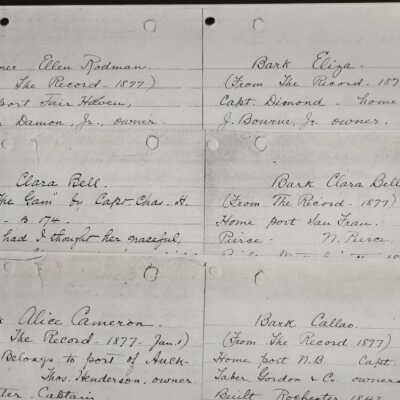 Ellen Rodman.
The Record - 1877)
port Fair Haven,
Damon, Jr., owner.
Bark Eliza.
(From The Record, 187
Capt. Dimond - home
J. Bourne, Jr. owner.
Clara Bell.
The Gam" by Capt. Chas. H.
p. 174.
had I thought her graceful,
Bark Clara Bell
(From The Record - 1877)
Home port San Fran.
Pierce - N. Pierce
Alice Cameron.
The Record - 1877. Jan. 1)
Belongs to port of Auck-
Thos. Henderson, owner
Captain
Bark Callao.
(From The Record 1877)
Home port N.B. Capt.
Taber Gordon & Co. owners
Built Rochester 184